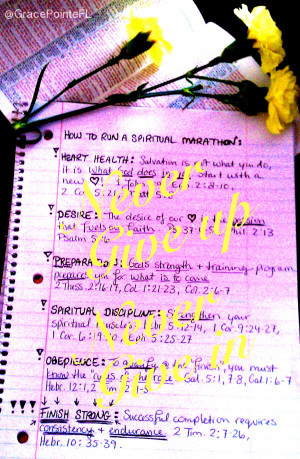 @GracePointeFL
HOW TO RUN A SPIRITUAL MARATHON:
HEART HEALTH: Salvation is not what you do,
it is what God does in you. Start with a
new ♡! 1 John Eph. 2:8-10,
2 Cor. 5:21,
DESIRE: The desire of our ♡ is the passion
that fuels our faith. Ps. 37: Phil. 2:13
Psalm
PREPARATION: God's strength + training program
prepares you for what is to come
2 Thess. 2:16-17, Col. 1:21-23, Col. 2:6-7
SPIRITUAL DISCIPLINE: Strengthen your
spiritual muscles. Hebr. 5:12-14, 1 Cor. 9:24-27,
1 Cor. 6:19-20, Eph 5:25-27
OBEDIENCE: To qualify @ the "finish", you must
know the "rules" of the race. Gal. 5:1, 7-8, Gal. 1:6-7
Hebr. 12:1,2
FINISH STRONG: Successful completion requires
consistency + endurance. 2 Tim. 2:7-26,
Hebr. 10:35-39.
Never
Give up
Never
Give in